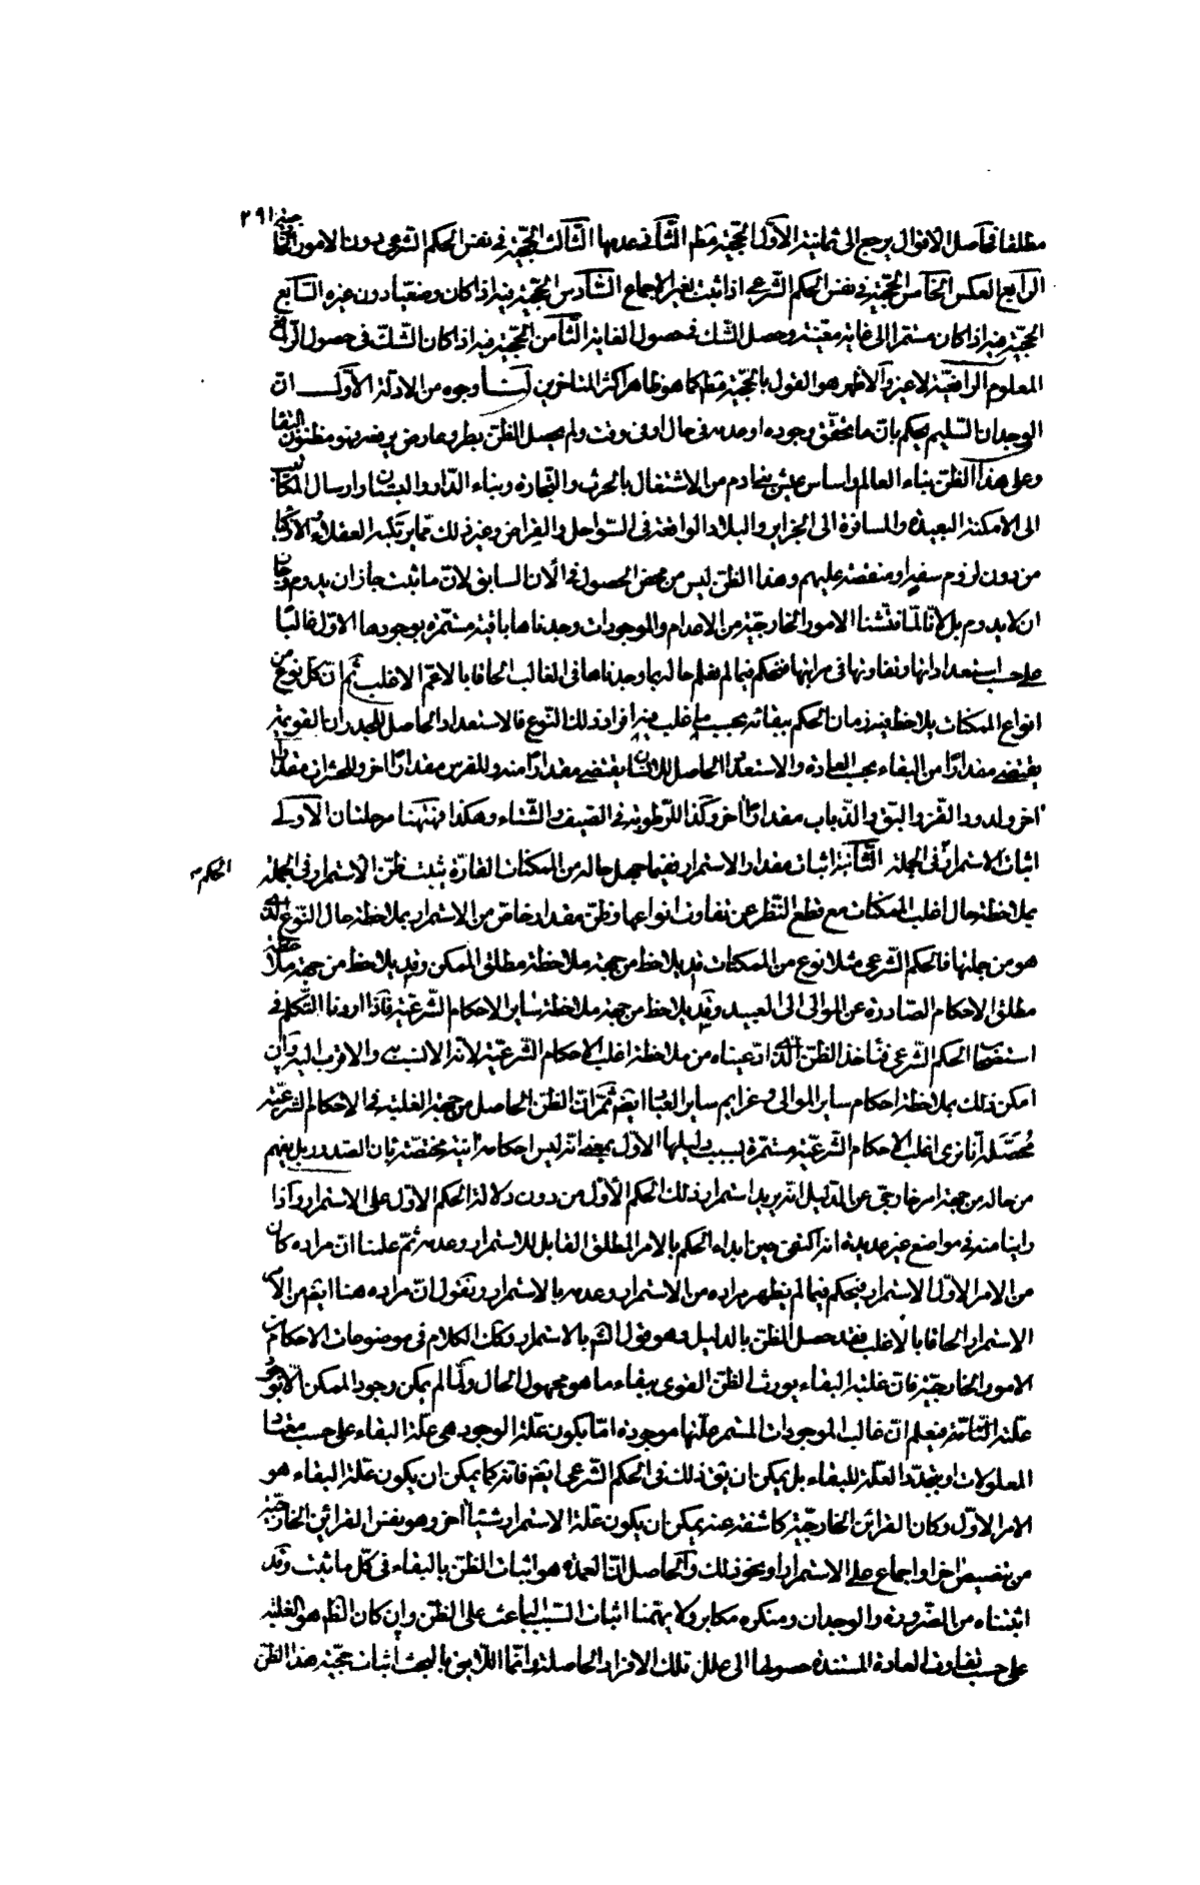 ٢٩١
مطلقا فحاصل الاقوال يرجع الى ثمانية الاوّل الحجّية مط الثّانى عدمها الثّالث الحجّية فى نفس الحكم الشرعى دون الامور الخا
الرابع العكس الخامس الحجّية فى نفس الحكم الشرعى اذا ثبت بغير الاجماع السّادس الحجّية فيه اذا كان وضعيّا دون غيره السّابع
الحجّية فيه اذا كان مستمرا الى غاية معيّنة وحصل الشك فى حصول الغاية الثّامن الحجّية فيه اذا كان الشّكّ فى حصول الرافع
المعلوم الرافعيّة لا غير والاظهر هو القول بالحجّية مط كما هو ظاهر اكثر المتاخرين لنا وجوه من الادلّة الاوّل انّ
الوجدان السّليم يحكم بان ما تحقّق وجوده او عدمه فى حال او فى وقت ولم يحصل الظنّ بطرو عارض يرفعه فهو مظنون البقا
وعلى هذا الظنّ بناء العالم واساس عيش بنى ادم من الاشتغال بالحرث والتّجارة وبناء الدّار والبستان وارسال المكاتيب
الى الامكنة البعيدة والمسافرة الى الجزاير والبلاد الواقعة فى السّواحل والفراض وغير ذلك ممّا يرتكبه العقلاء الاذكيا
من دون لزوم سفه او منقصة عليهم وهذا الظنّ ليس من محض الحصول فى الان السابق لانّ ما ثبت جاز ان يدوم وجاز
ان لا يدوم بل لانّا لمّا فتّشنا الامور الخارجيّة من الاعدام والموجودات وجدناها باقية مستمرّة بوجودها الاوّل غالبًا
على حسب استعداداتها وتفاوتها فى مراتبها فنحكم فيما لم يعلم حاله بما وجدناها فى الغالب الحاقا بالاعمّ الاغلب ثم ان كل نوع من
انواع الممكنات يلاحظ فيه زمان الحكم ببقائه بحسب ما غلب فى افراد ذلك النّوع فالاستعداد الحاصل للجدران القويمة
يقتضى مقدارًا من البقاء بحسب العادة والاستعداد الحاصل للانسان يقتضى مقدارًا منه وللفرس مقدارًا اخر وللحشرات مقدارا
اخر ولدود القز والبقّ والذّباب مقدارًا اخر وكذا للرّطوبة فى الصّيف والشّتاء وهكذا فههنا مرحلتان الاولى
اثبات الاستمرار فى الجملة الثّانية اثبات مقدار الاستمرار ففيما جهل حاله من الممكنات القارّة يثبت ظنّ الاستمرار فى الجملة
الحكم
بملاحظة حال اغلب الممكنات مع قطع النّظر عن تفاوت انواعها وظنّ مقدار خاص من الاستمرار بملاحظة حال النّوع الّذى
هو من جملتها فالحكم الشّرعى مثلا نوع من الممكنات قد يلاحظ من جهة ملاحظة مطلق الممكن وقد يلاحظ من جهة ملاحظة
مطلق الاحكام الصّادرة عن الموالى الى العبيد وقد يلاحظ من جهة ملاحظة ساير الاحكام الشّرعيّة فاذا اردنا التّكلم فى
استصحاب الحكم الشّرعى فناخذ الظنّ الّذى ادّعيناه من ملاحظة اغلب الاحكام الشّرعيّة لانه الانسب والاقرب اليه وان
امكن ذلك بملاحظة احكام ساير الموالى وعزايم ساير العباد ايضم ثمّ انّ الظنّ الحاصل من جهة الغلبة فى الاحكام الشرعيّة
مُحصّله انّا نرى اغلب الاحكام الشّرعيّة مستمرّة بسبب دليلها الاوّل بمعنى انه ليس احكاما انية مختصّة بان الصّدور بل يفهم
من حاله من جهة امر خارجى عن الدّليل انه يريد استمرار ذلك الحكم الاوّل من دون دلالة الحكم الاوّل على الاستمرار واذا
راينا منه فى مواضع غير عديدة انه اكتفى حين ابداء الحكم بالامر المطلق القابل للاستمرار وعدمه ثمّ علمنا انّ مراده كان
من الامر الاوّل الاستمرار فنحكم فيما لم يظهر مراده من الاستمرار وعدمه بالاستمرار ونقول انّ مراده هنا ايضم من الامر
الاستمرار الحاقا بالاغلب فقد حصل الظنّ بالدليل وهو قول الشم بالاستمرار وكك الكلام فى موضوعات الاحكام من
الامور الخارجيّة فان غلبة البقاء يورث الظنّ القوى ببقاء ما هو مجهول الحال ولمّا لم يمكن وجود الممكن الا بوجود
علّته التّامّة فنعلم انّ غالب الموجودات المستمر علّتها موجودة امّا بكون علّة الوجود هى علّة البقاء على حسب مقدار
المعلولات او بتجدّد العلّة للبقاء بل يمكن ان يق ذلك فى الحكم الشّرعى ايضم فانه كما يمكن ان يكون علّة البقاء هو
الامر الاوّل وكان القرائن الخارجيّة كاشفة عنه يمكن ان يكون علّة الاستمرار شيئًا اخر وهو نفس القرائن الخارجيّة
من تنصيص اخر او اجماع على الاستمرار او نحو ذلك والحاصل انّ العمدة هو اثبات الظنّ بالبقاء فى كلّ ما ثبت وقد
اثبتناه من الضّرورة والوجدان ومنكره مكابر ولا يهمّنا اثبات السّبب الباعث على الظنّ وان كان الظّم هو الغلبة
على حسب تفاوت العادة المستندة حصولها الى علل تلك الافراد الحاصلة وانّما اللّايق بالبحث اثبات حجّية هذا الظنّ